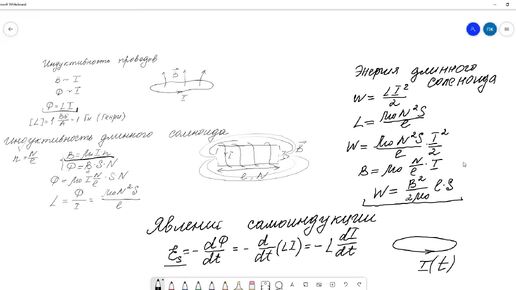 Индуктивность проводов
B ~ I
Φ ~ I
Φ = LI
[L] = 1 Вб/А = 1 Гн (Генри)
B
I
Индуктивность длинного соленоида
n = N/l
B = μ₀In
Φ = B·S·N
Φ = μ₀I N/l · SN
L = Φ/I = μ₀N²S/l
I
B
l, N
Энергия длинного
соленоида
W = LI²/2
L = μ₀N²S/l
W = μ₀N²S/l · I²/2
B = μ₀ N/l · I
W = B²/2μ₀ l·S
Явление самоиндукции
Ɛs = - dΦ/dt = - d/dt (LI) = - L dI/dt
I(t)